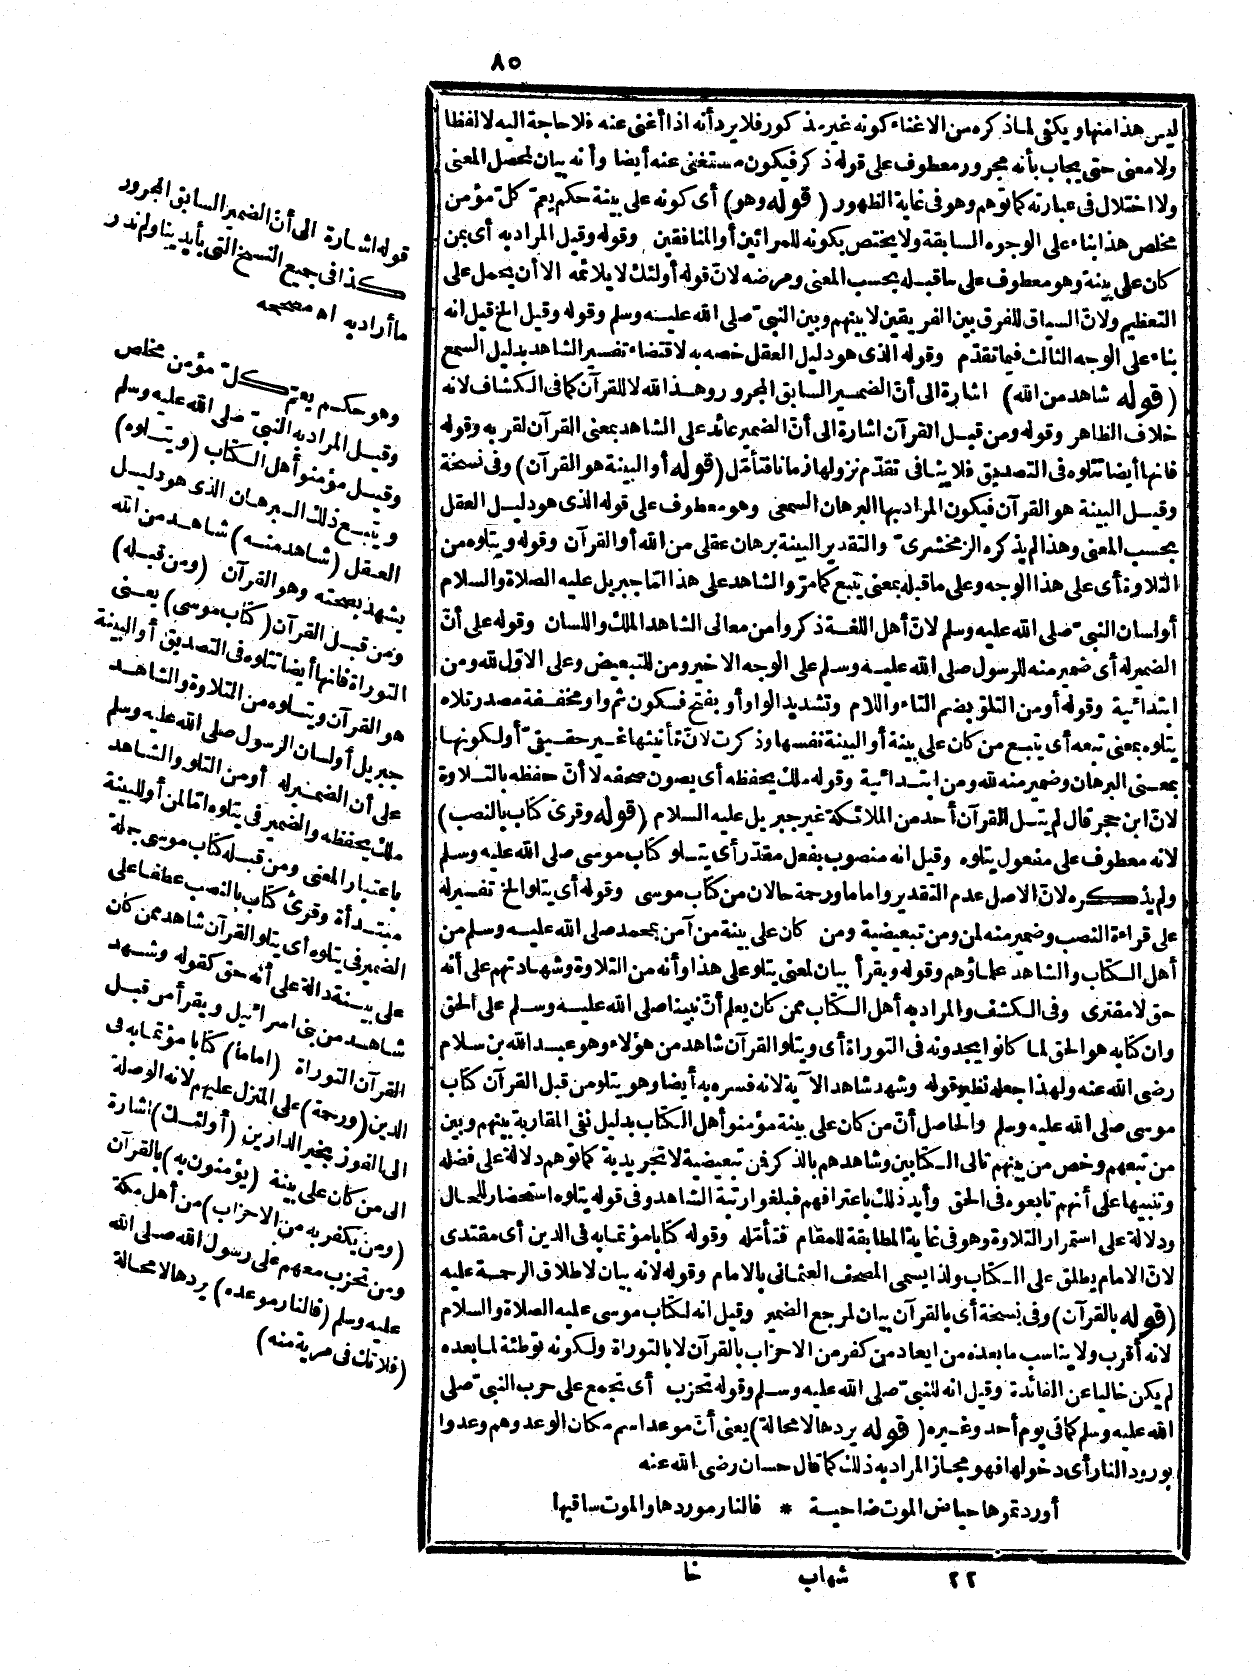 ٨٥
ليس هذا منها ويكفي لما ذكره من الاغناء كونه غير مذكور فلا يرد أنه اذا أغنى عنه فلا حاجة اليه لا لفظا
ولا معنى حتى يجاب بأنه مجرور معطوف على قوله ذكر فيكون مستغنى عنه أيضا وأنه بيان لمحصل المعنى
ولا اختلال في عبارته كما توهم وهو في غاية الظهور (قوله وهو) أى كونه على بينة حكم يعمّ كلّ مؤمن
مخلص هذا بناء على الوجوه السابقة ولا يختص بكونه للمرائين أو المنافقين وقوله وقيل المراد به أى بمن
كان على بينة وهو معطوف على ما قبله بحسب المعنى ومرضه لانّ قوله أولئك لا يلائمه الا أن يحمل على
التعظيم ولانّ السياق للفرق بين الفريقين لا بينهم وبين النبيّ صلى الله عليه وسلم وقوله وقيل الخ قيل انه
بناء على الوجه الثالث فيما تقدّم وقوله الذى هو دليل العقل خصه به لاقتضاء تفسير الشاهد بدليل السمع
(قوله شاهد من الله) اشارة الى أنّ الضمير السابق المجرور وهذا لله لا للقرآن كما في الكشاف لانه
خلاف الظاهر وقوله ومن قبل القرآن اشارة الى أنّ الضمير عائد على الشاهد بمعنى القرآن لقربه وقوله
فانها أيضا تتلوه في التصديق فلا ينافى تقدّم نزولها زمانا فتأمّل (قوله أو البينة هو القرآن) وفي نسخة
وقيل البينة هو القرآن فيكون المراد بها البرهان السمعى وهو معطوف على قوله الذى هو دليل العقل
بحسب المعنى وهذا لم يذكره الزمخشرىّ والتقدير البينة برهان عقلى من الله أو القرآن وقوله ويتلوه من
التلاوة أى على هذا الوجه وعلى ما قبله بمعنى يتبع كما مرّ والشاهد على هذا امّا جبريل عليه الصلاة والسلام
أو لسان النبيّ صلى الله عليه وسلم لانّ أهل اللغة ذكروا من معانى الشاهد الملك واللسان وقوله على أنّ
الضمير له أى ضمير منه للرسول صلى الله عليه وسلم على الوجه الاخير ومن للتبعيض وعلى الاوّل لله ومن
ابتدائية وقوله أو من التلوّ بضم التاء واللام وتشديد الواو أو بفتح فسكون ثم واو مخففة مصدر تلاه
يتلوه بمعنى تبعه أى يتبع من كان على بينة أو البينة نفسها وذكرت لانّ تأنيثها غير حقيقىّ أو لكونها
بمعنى البرهان وضمير منه لله ومن ابتدائية وقوله ملك يحفظه أى يصون صحفه لا أنّ حفظه بالتلاوة
لانّ ابن حجر قال لم يتل القرآن أحد من الملائكة غير جبريل عليه السلام (قوله وقرئ كتاب بالنصب)
لانه معطوف على مفعول يتلوه وقيل انه منصوب بفعل مقدّر أى يتلو كتاب موسى صلى الله عليه وسلم
ولم يذكره لانّ الاصل عدم التقدير واماما ورحمة حالان من كتاب موسى وقوله أى يتلو الخ تفسير له
على قراءة النصب وضمير منه لمن ومن تبعيضية ومن كان على بينة من آمن بمحمد صلى الله عليه وسلم من
أهل الكتاب والشاهد علماؤهم وقوله ويقرأ بيان لمعنى يتلو على هذا وأنه من التلاوة وشهادتهم على أنه
حق لا مفترى وفي الكشف والمراد به أهل الكتاب ممن كان يعلم أنّ نبينا صلى الله عليه وسلم على الحق
وان كتابه هو الحق لما كانوا يجدونه في التوراة أى ويتلو القرآن شاهد من هؤلاء وهو عبد الله بن سلام
رضى الله عنه ولهذا جعله نظير قوله وشهد شاهد الآية لانه فسره به أيضا وهو يتلو من قبل القرآن كتاب
موسى صلى الله عليه وسلم والحاصل أنّ من كان على بينة مؤمنو أهل الكتاب بدليل نفى المقاربة بينهم وبين
من تبعهم وخص من بينهم تالى الكتابين وشاهدهم بالذكر فمن تبعيضية لا تجريدية كما توهم دلالة على فضله
وتنبيها على أنهم تابعوه في الحق وأيد ذلك باعترافهم فبلغوا رتبة الشاهد وفي قوله يتلوه استحضار للحال
ودلالة على استمرار التلاوة وهو في غاية المطابقة للمقام فتأمّله وقوله كتابا مؤتما به في الدين أى مقتدى
لانّ الامام يطلق على الكتاب ولذا يسمى المصحف العثمانى بالامام وقوله لانه بيان لاطلاق الرحمة عليه
(قوله بالقرآن) وفي نسخة أى بالقرآن بيان لمرجع الضمير وقيل انه لكتاب موسى عليه الصلاة والسلام
لانه أقرب ولا يناسب ما بعده من ايعاد من كفر من الاحزاب بالقرآن لا بالتوراة ولكونه توطئة لما بعده
لم يكن خاليا عن الفائدة وقيل انه للنبيّ صلى الله عليه وسلم وقوله تحزب أى تجمع على حرب النبيّ صلى
الله عليه وسلم كما في يوم أحد وغيره (قوله يردها لا محالة) يعنى أنّ موعد اسم مكان الوعد وهم وعدوا
بورود النار أى دخولها فهو مجاز المراد به ذلك كما قال حسان رضى الله عنه
أوردتموها حياض الموت ضاحية * فالنار موردها والموت ساقيها
٢٢ شهاب خا
قوله اشارة الى أنّ الضمير السابق المجرور
كذا في جميع النسخ التى بأيدينا ولم ندر
ما أراد به اه مصححه
وهو حكم يعمّ كلّ مؤمن مخلص
وقيل المراد به النبيّ صلى الله عليه وسلم
وقيل مؤمنو أهل الكتاب (ويتلوه)
ويتبع ذلك البرهان الذى هو دليل
العقل (شاهد منه) شاهد من الله
يشهد بصحته وهو القرآن (ومن قبله)
ومن قبل القرآن (كتاب موسى) يعنى
التوراة فانها أيضا تتلوه في التصديق أو البينة
هو القرآن ويتلوه من التلاوة والشاهد
جبريل أو لسان الرسول صلى الله عليه وسلم
على أن الضمير له أو من التلو والشاهد
ملك يحفظه والضمير في يتلوه اما لمن أو للبينة
باعتبار المعنى ومن قبله كتاب موسى جملة
مبتدأة وقرئ كتاب بالنصب عطفا على
الضمير في يتلوه أى يتلو القرآن شاهد ممن كان
على بينة دالة على أنه حق كقوله وشهد
شاهد من بنى اسرائيل ويقرأ من قبل
القرآن التوراة (اماما) كتابا مؤتما به في
الدين (ورحمة) على المنزل عليهم لانه الوصلة
الى الفوز بخير الدارين (أولئك) اشارة
الى من كان على بينة (يؤمنون به) بالقرآن
(ومن يكفر به من الاحزاب) من أهل مكة
ومن تحزب معهم على رسول الله صلى الله
عليه وسلم (فالنار موعده) يردها لا محالة
(فلا تك في مرية منه)